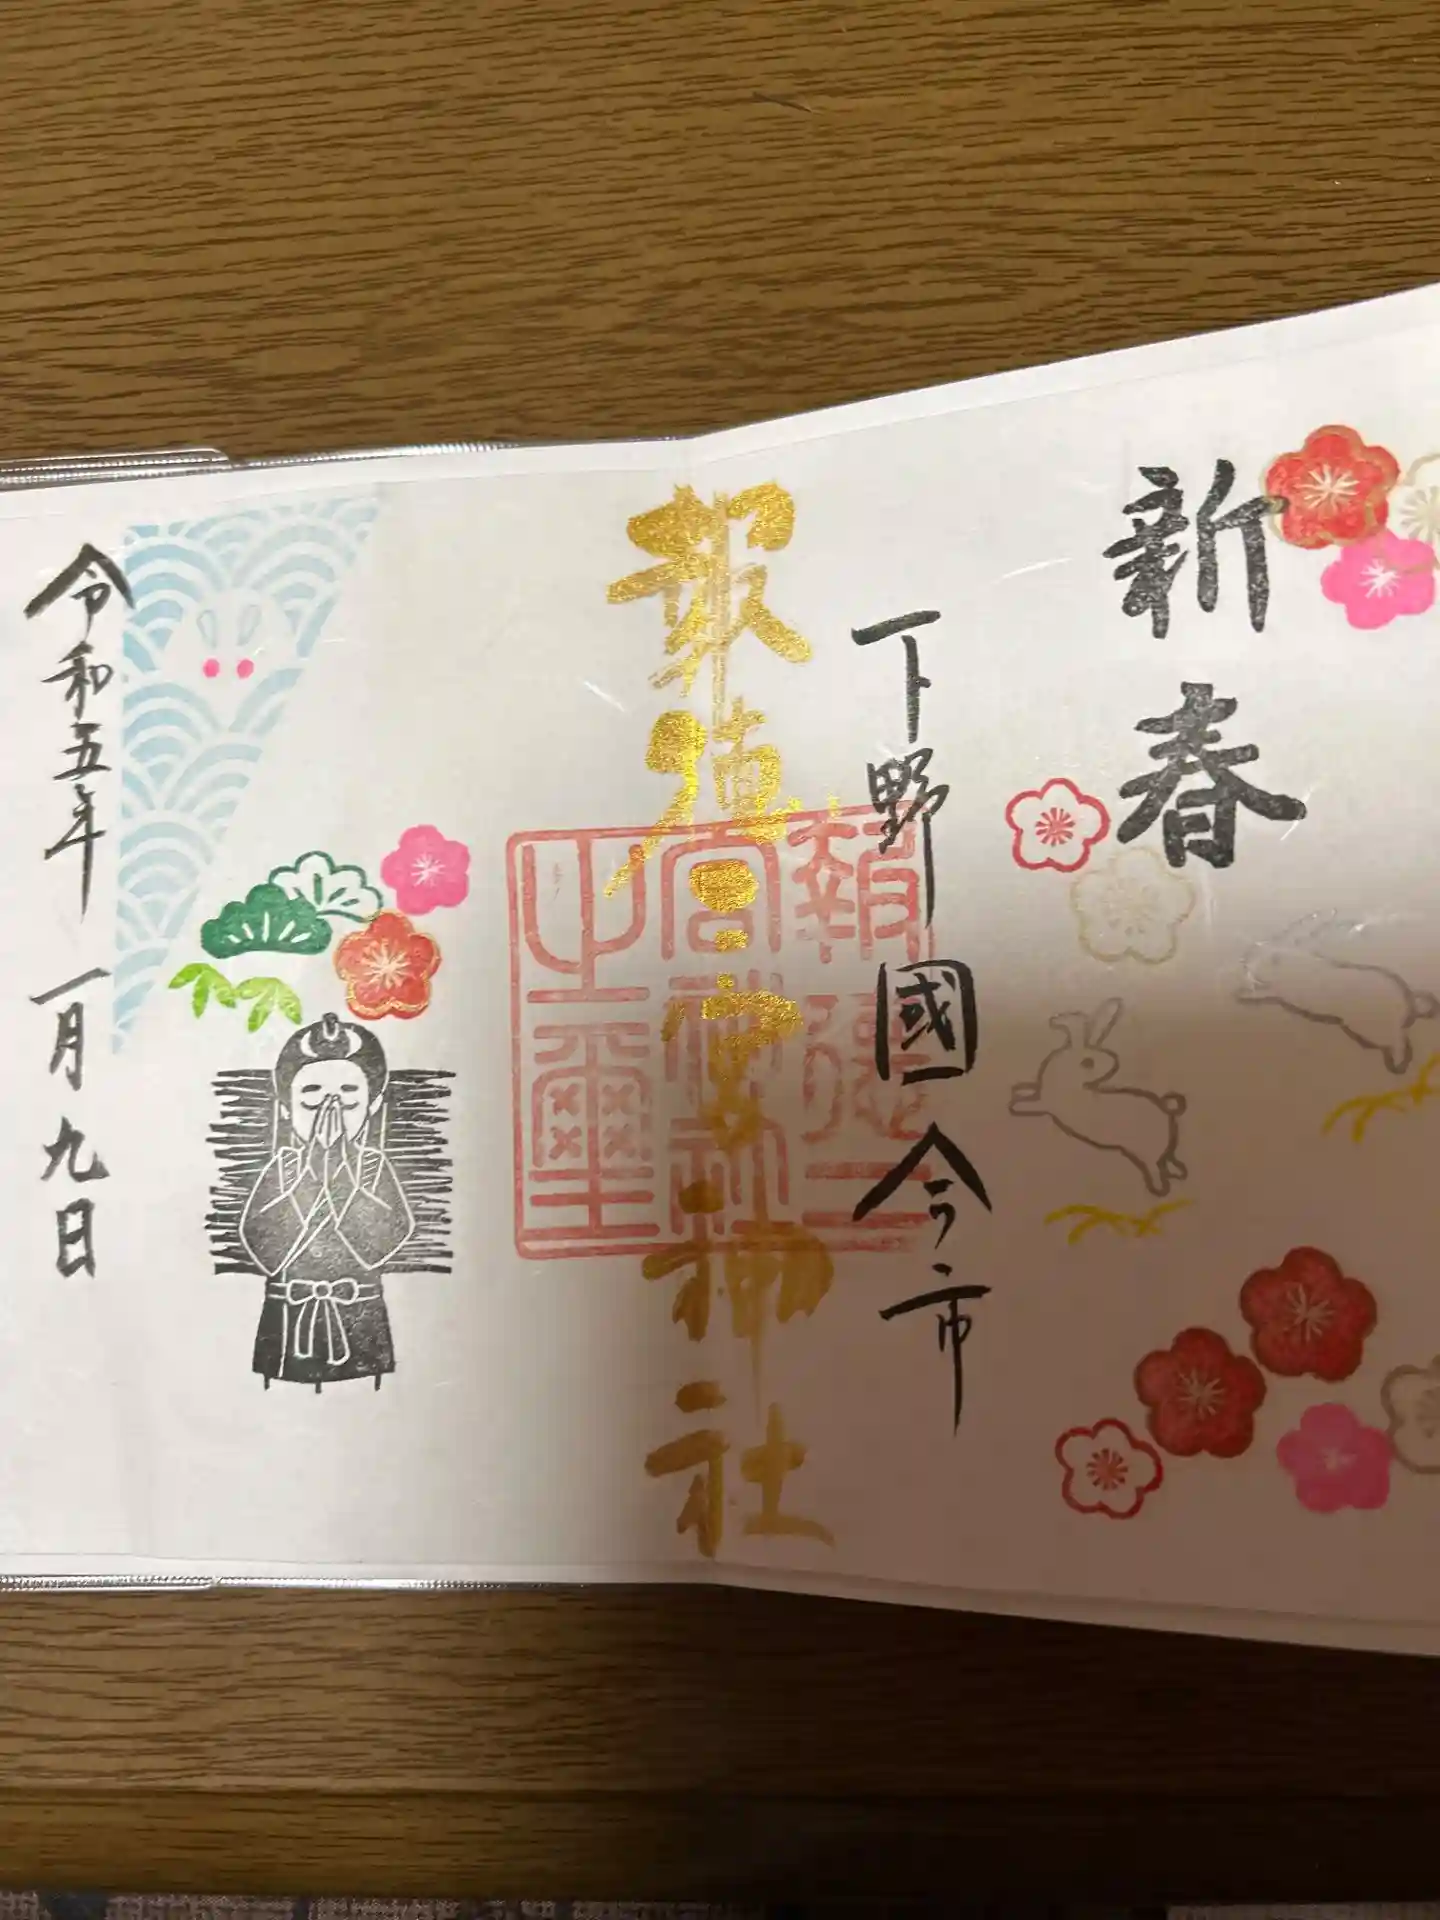 新春
下野國今市
報徳二宮神社
報徳二宮神社之璽
令和五年 一月九日